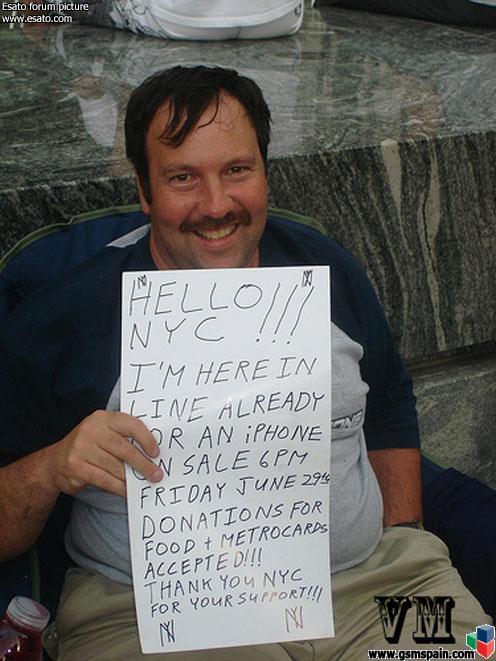 Esato forum picture
www.esato.com
HELLO!!!
NYC !!!
I'M HERE IN
LINE ALREADY
OR AN iPHONE
ON SALE 6PM
FRIDAY JUNE 29th
DONATIONS FOR
FOOD + METROCARDS
ACCEPTED!!!
THANK YOU NYC
FOR YOUR SUPPORT!!!
NY NY
VM
www.gsmspain.com